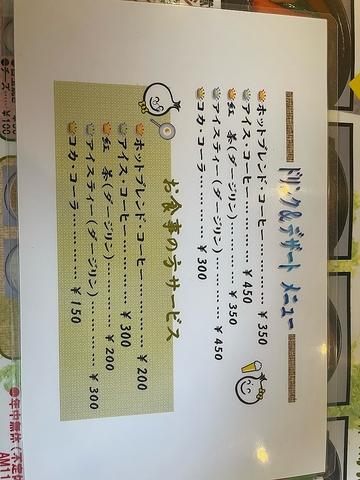 ドリンク&デザート メニュー
ホットブレンド・コーヒー………¥350
アイス・コーヒー………¥450
紅 茶(ダージリン)………¥350
アイスティー(ダージリン)………¥450
コカ・コーラ………¥300
お食事の方サービス
ホットブレンド・コーヒー………¥200
アイス・コーヒー………¥300
紅 茶(ダージリン)………¥200
アイスティー(ダージリン)………¥300
コカ・コーラ………¥150
チーズ…¥100
●年中無休
AM11